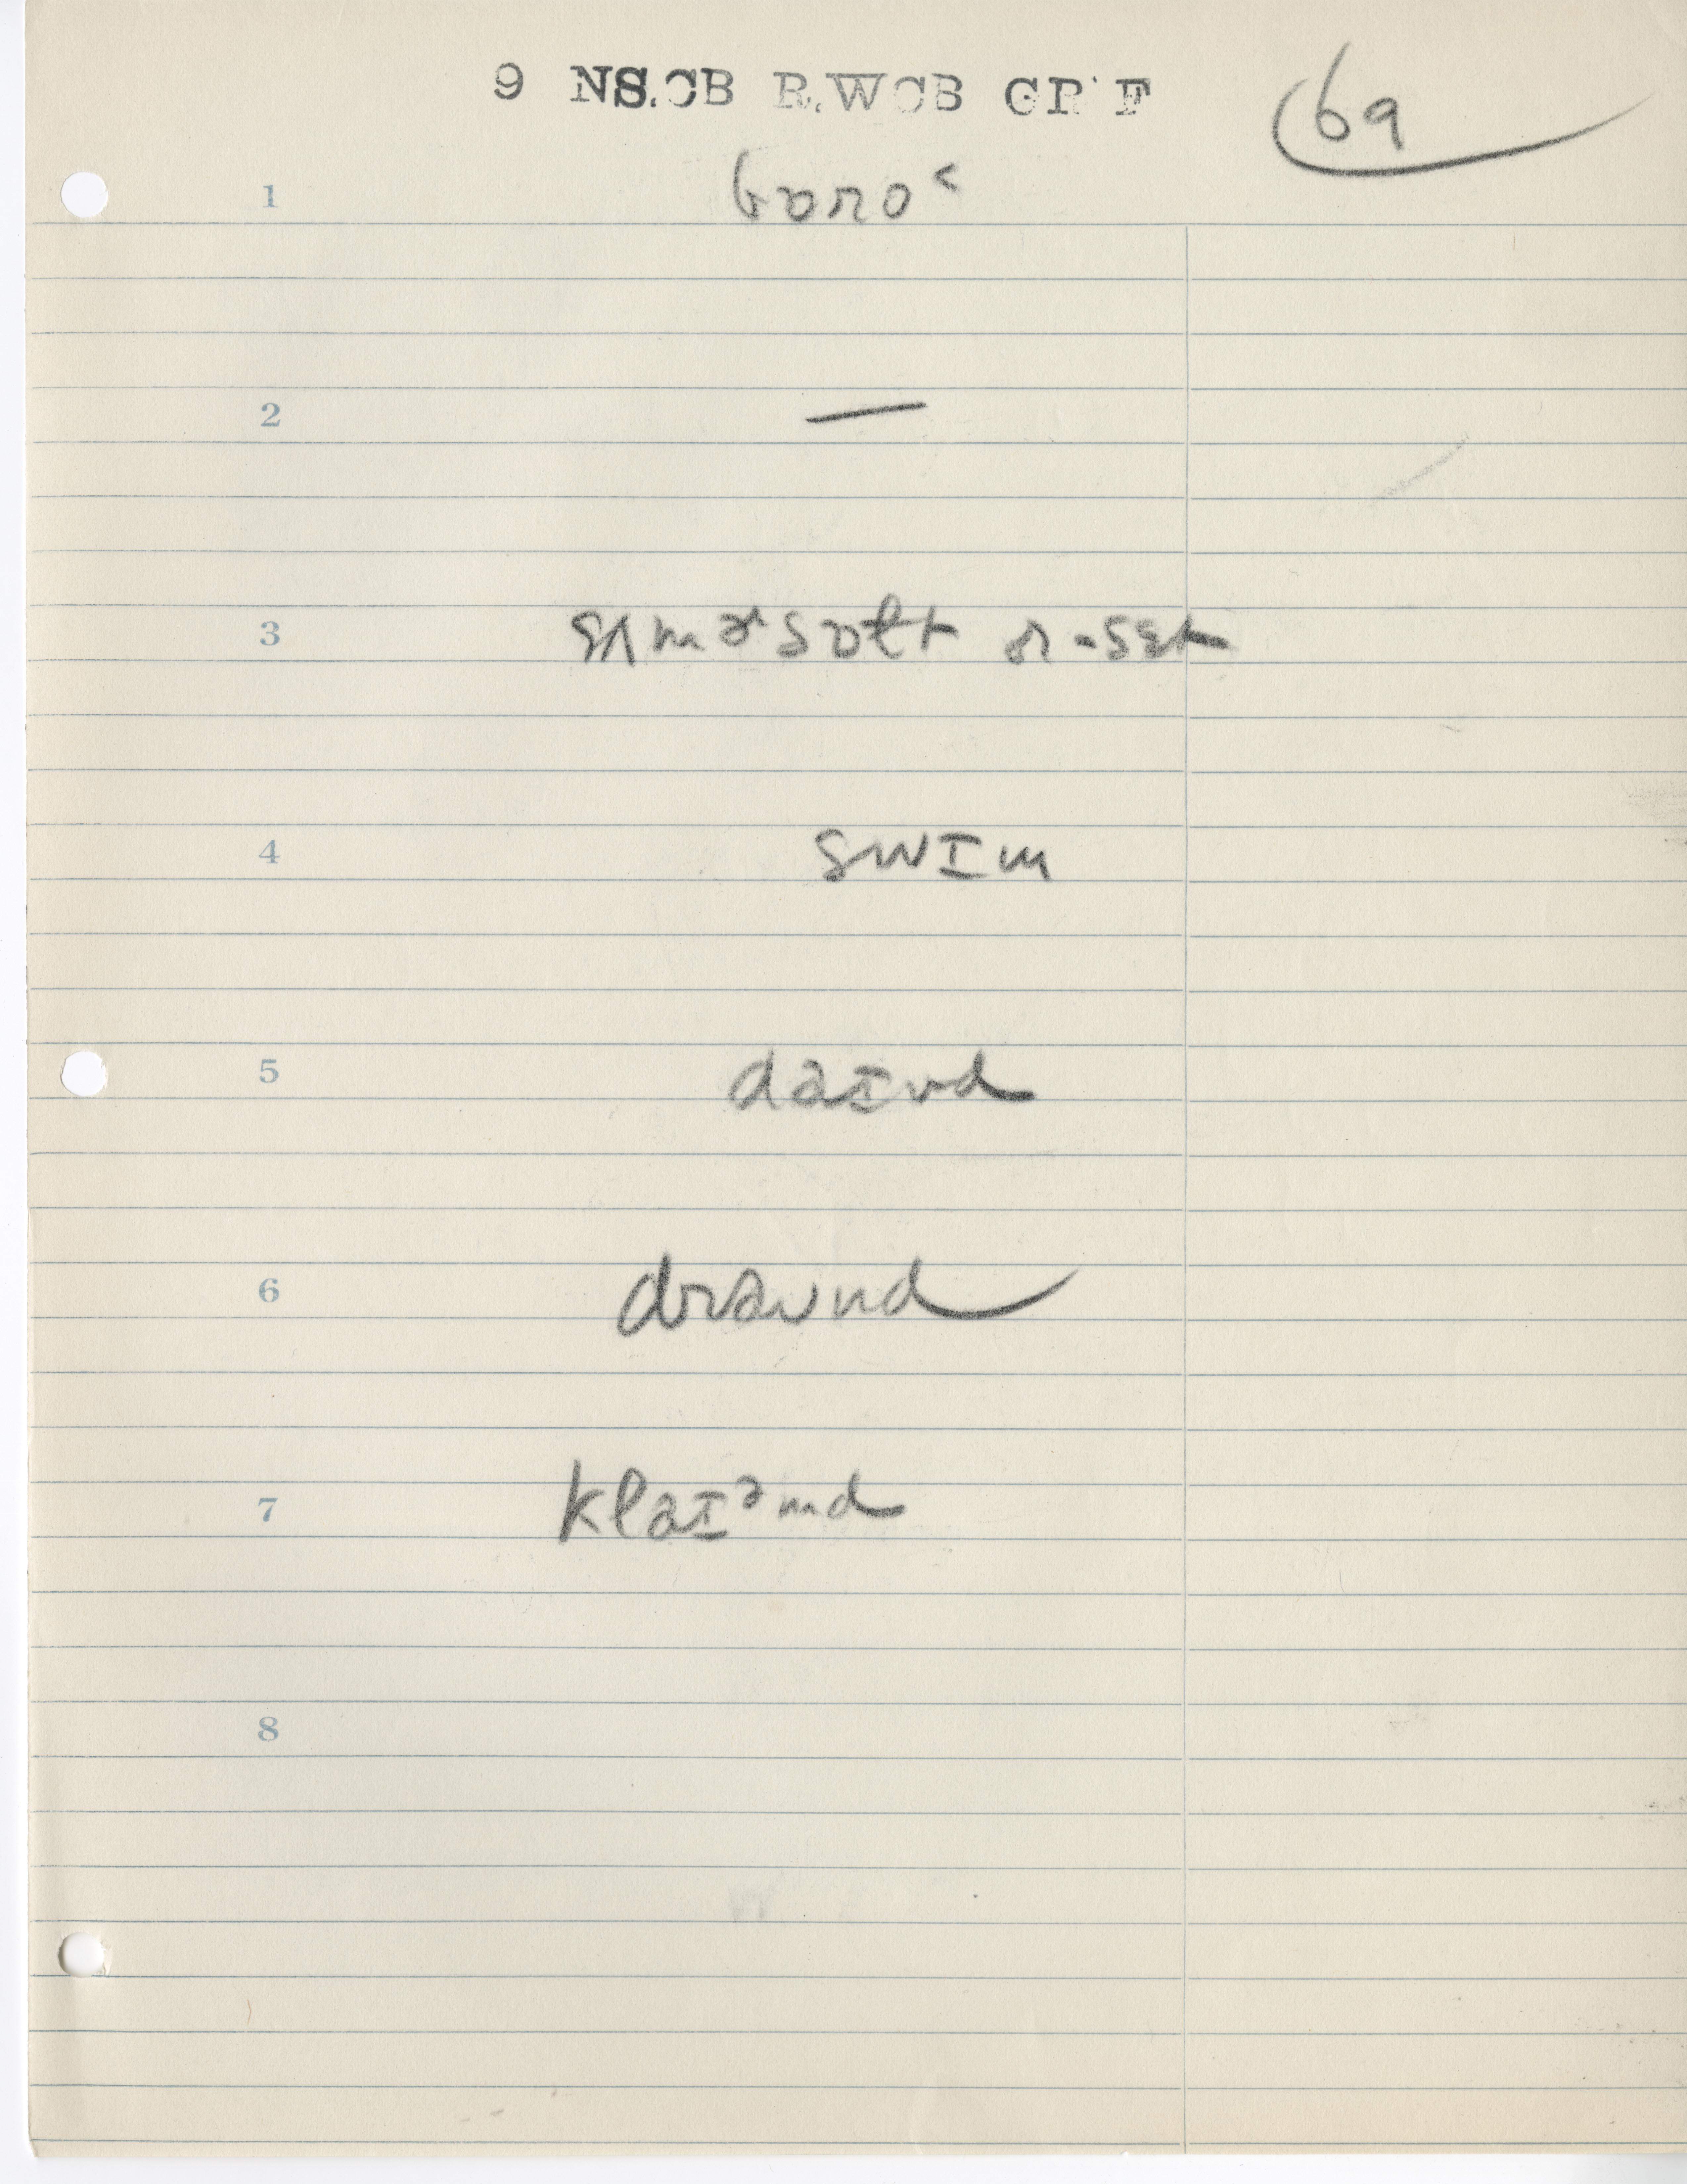 9 NS.CB R.WCB GR F
69
1 bɒro˂
2 —
3 sʌmɚsɒlt ɚ -sɛt
4 swɪm
5 daɪvd
6 draʊnd
7 klaɪᵊmd
8